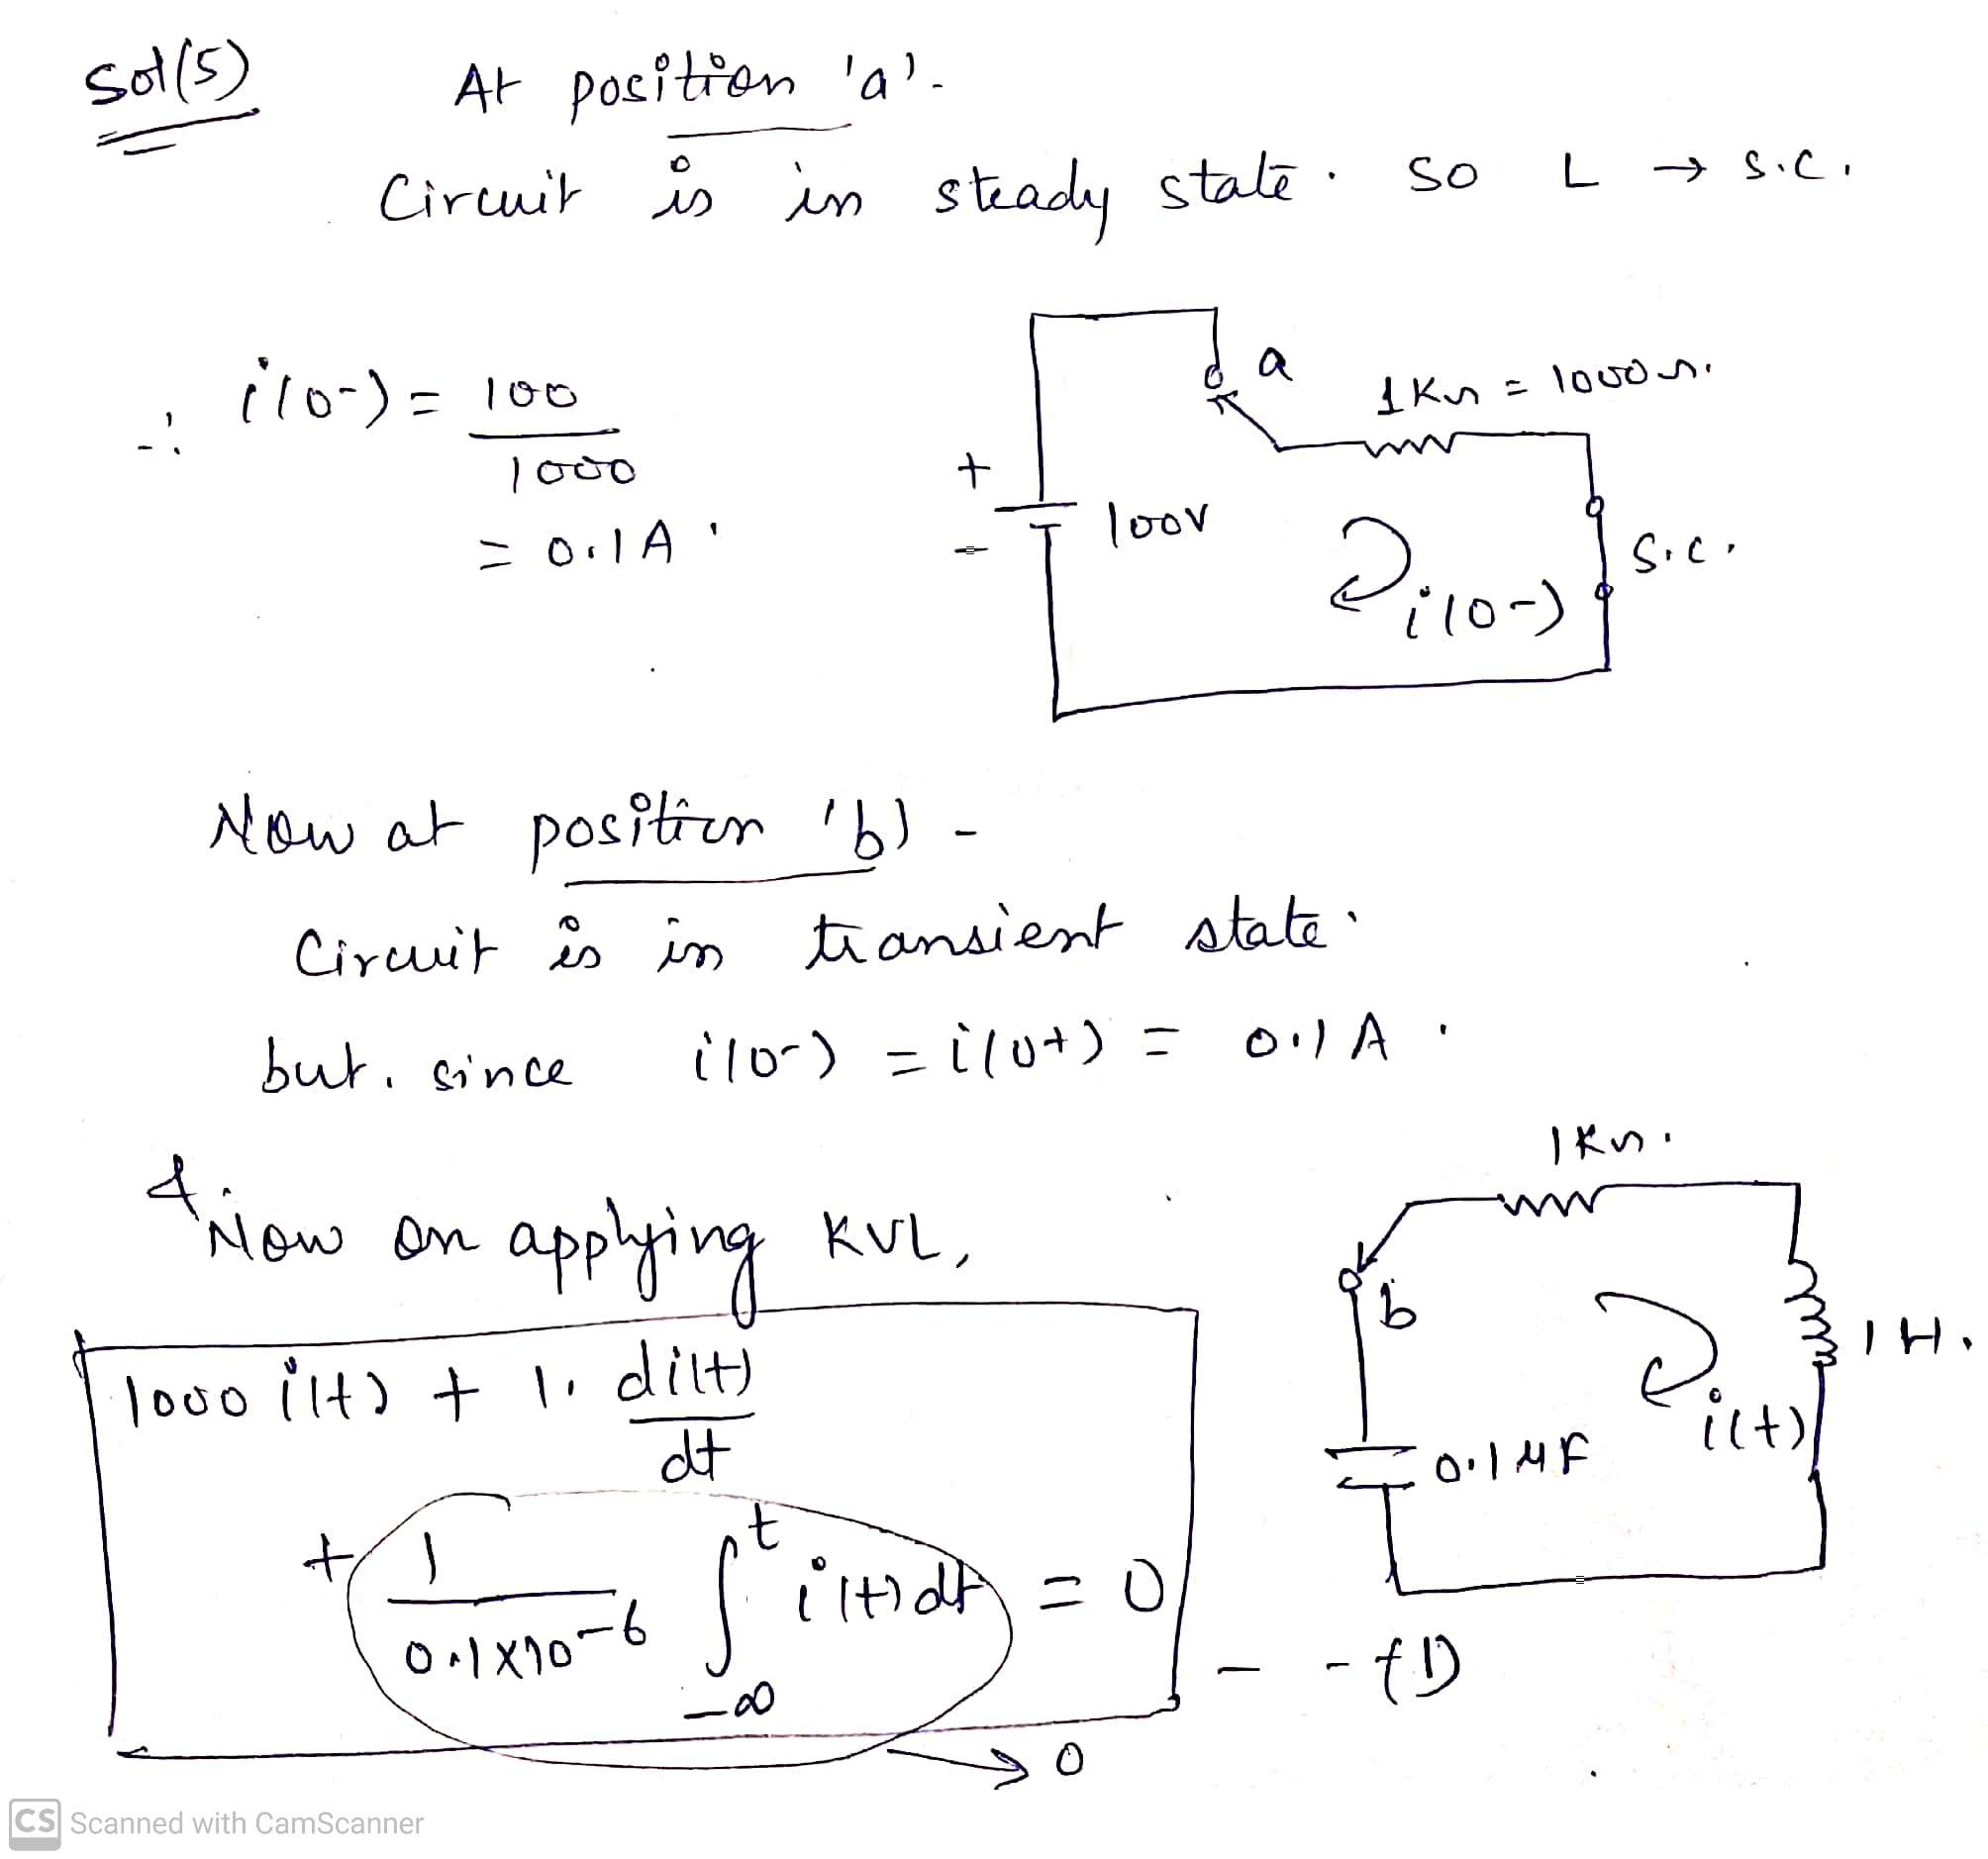 Sol(5) At position 'a'-
Circuit is in steady state. so L → s.c.
∴ i(0-) = 100
1000
= 0.1A.
a
1KΩ = 1000Ω.
+
100V
-
s.c.
i(0-)
Now at position 'b' -
Circuit is in transient state.
but. since i(0-) = i(0+) = 0.1A.
& Now on applying KVL,
1000 i(t) + 1. di(t)
dt
+ 1
0.1x10-6 ∫ t -∞ i(t) dt = 0 - - (1)
→ 0
1KΩ.
b
1H.
i(t)
0.1µF
CS Scanned with CamScanner